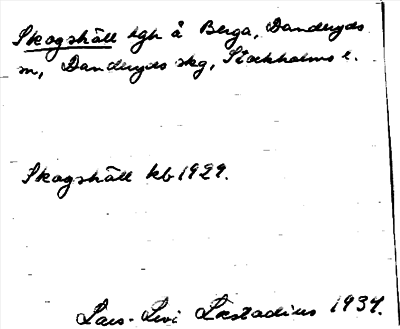 Skogshäll lgh å Berga, Danderyds
sn, Danderyds skg, Stockholms l.
Skogshäll kb 1929.
Lars-Levi Læstadius 1934.